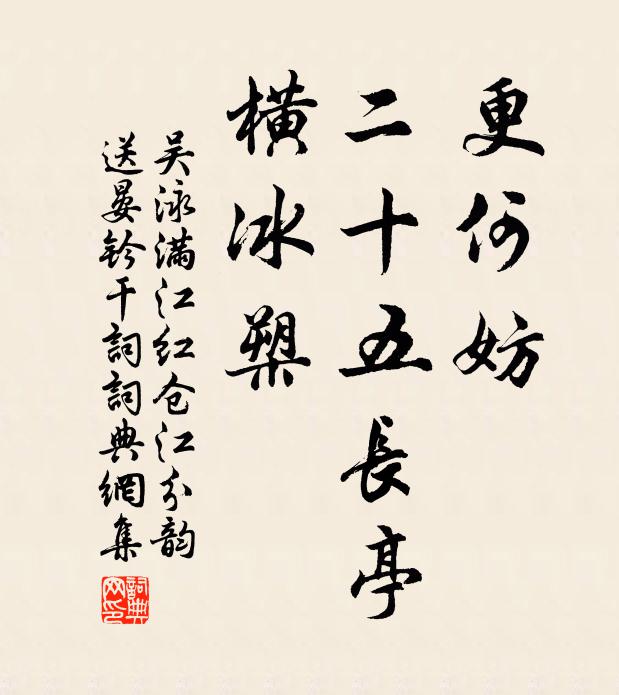 更何妨
二十五長亭
橫冰槊
吴泳满江红仓江分韵
送晏鈐干詞詞典網集
詞典網印